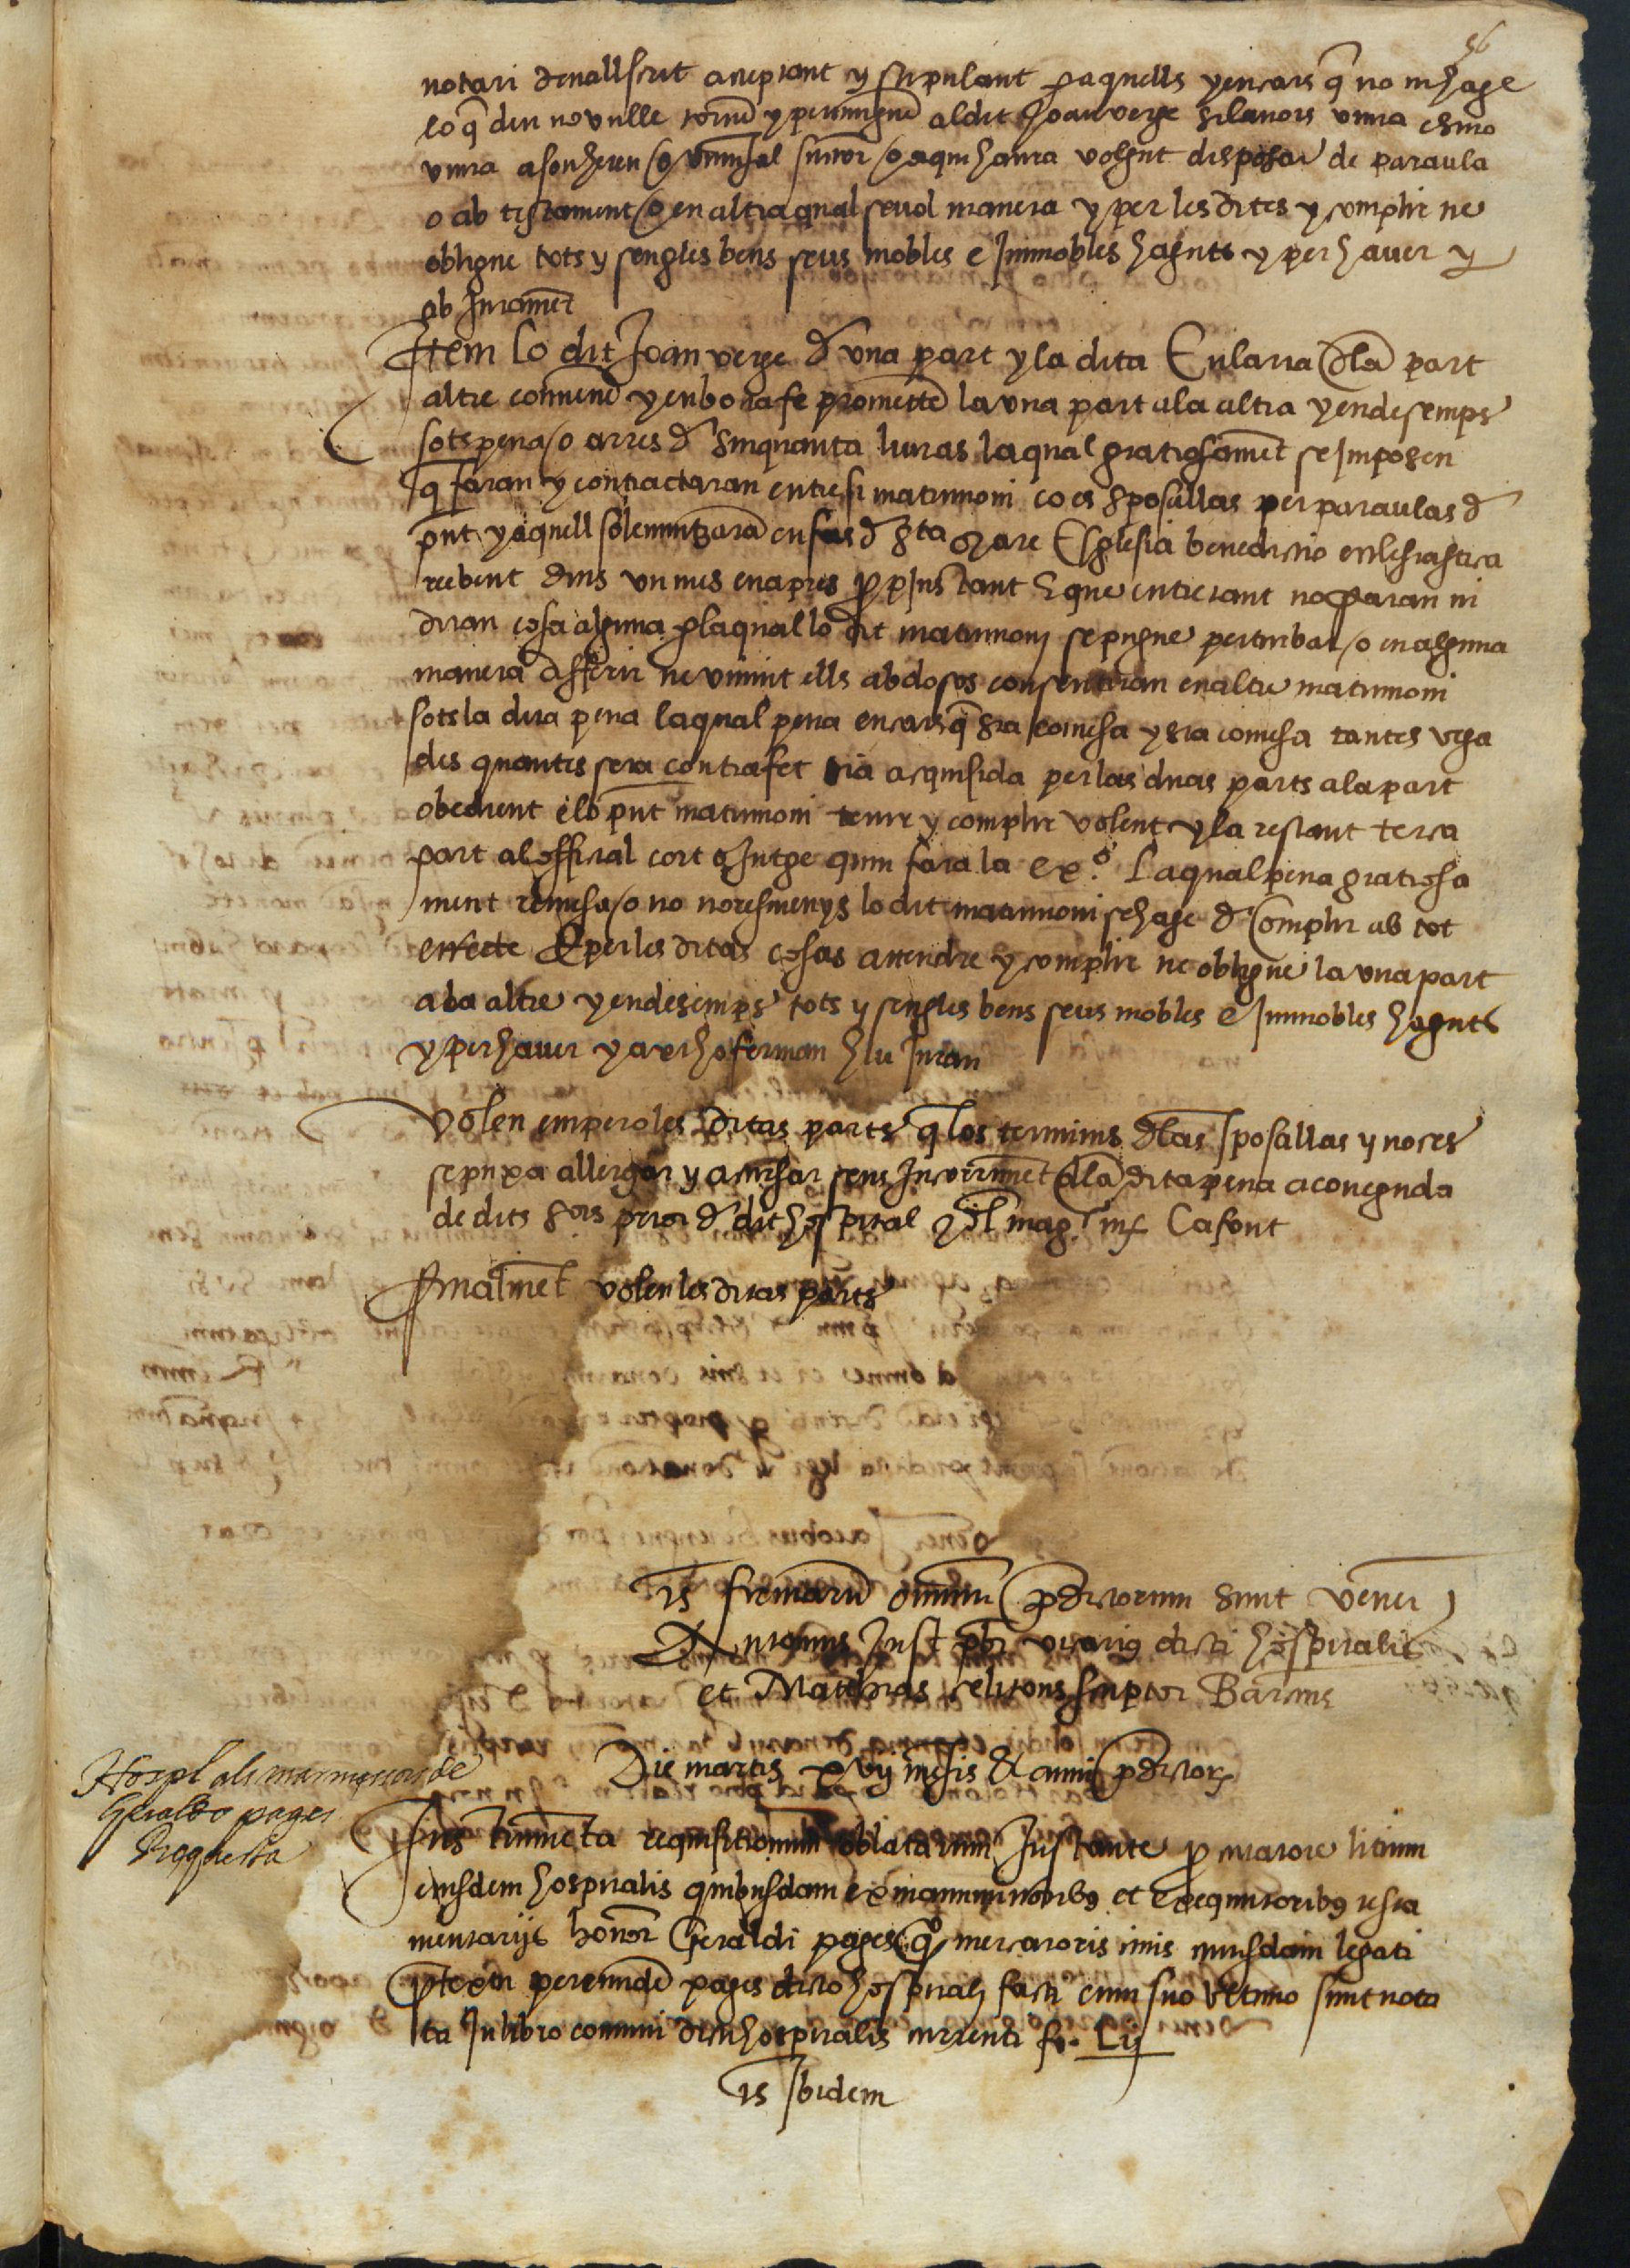 56
notari devallscrit acceptant y stipulant p aquells y encars q̃ no ni hage
lo q̃ deu no vulle torne y pervingue al dit Joan verge si lavors viura e si no
viura a son hereu o universal succor o a qui haura volgut disposar de paraula
o ab testament o en altra qual sevol manera y per les dites y complir ne
obligue tots y sengles bens seus mobles e Immobles haguts y per haver y
ab Jurament
Item lo dit Joan verge d una part y la dita Eularia dla part
altre convene y en bona fe promette la una part a la altra y endesemps
sots pena o arres d sinquanta liuras la qual gratiosament se Imposen
q̃ faran y contractaran entre si matrimoni ço es sposallas per paraulas d
pnt y aquell solemnizara en fas d sta mare Esglesia benedictio ecclesiastica
rebent dins un mes en apres p p Instant e que entretant no faran ni
diran cosa alguna p la qual lo dit matrimoni se pugue perturbar o en alguna
manera differir ne vivint ells abdosos consentiran en altre matrimoni
sots la dita pena la qual pena encars q̃ sia comesa y sia comesa tantes vega
des quantes sera contrafet sia acquisida per las duas parts a la part
obedient e lo pnt matrimoni tenir y complir volent y la restant terça
part al official cort o Jutge quin fara la exo. La qual pena gratiosa
ment remesa o no no resmenys lo dit matrimoni se hage d Complir ab tot
effecte E per les ditas cosas attendre y complir ne obligue la una part
a la altre y endesemps tots y sengles bens seus mobles e Immobles haguts
y per haver y axi ho ferman y ho Juran
Volen empero les ditas parts q̃ los terminis dlas sposallas y noces
se puxa allergar y a[...] sens Incorriment dla dita pena a coneguda
de dits sors prior d dit hospital y dl mag. mr Cafont
Finalment volen les ditas parts
Ts firmaru omniu pdictorum sunt vener
Antonius Just pbr vicarius dicti hospitalis
et Mathias [...] scriptor Barcns
Die martis xvij mesis et anni pdictor
Hospl als marmessors de
Geraldo pages
Requesta
Ins[...] requisitionum oblatarum Instante p curatore litium
eiusdem hospitalis quibusdam ex manumissoribus et exequutoribus testa
mentarijs honor Geraldi pages qo mercatoris civis cuiusdam legati
ptextu per eunde pages dicto hospitali facti cum suo ultimo sunt nota
ta In libro comuni dicti hospitalis currenti fo. Lij
Ts Ibidem